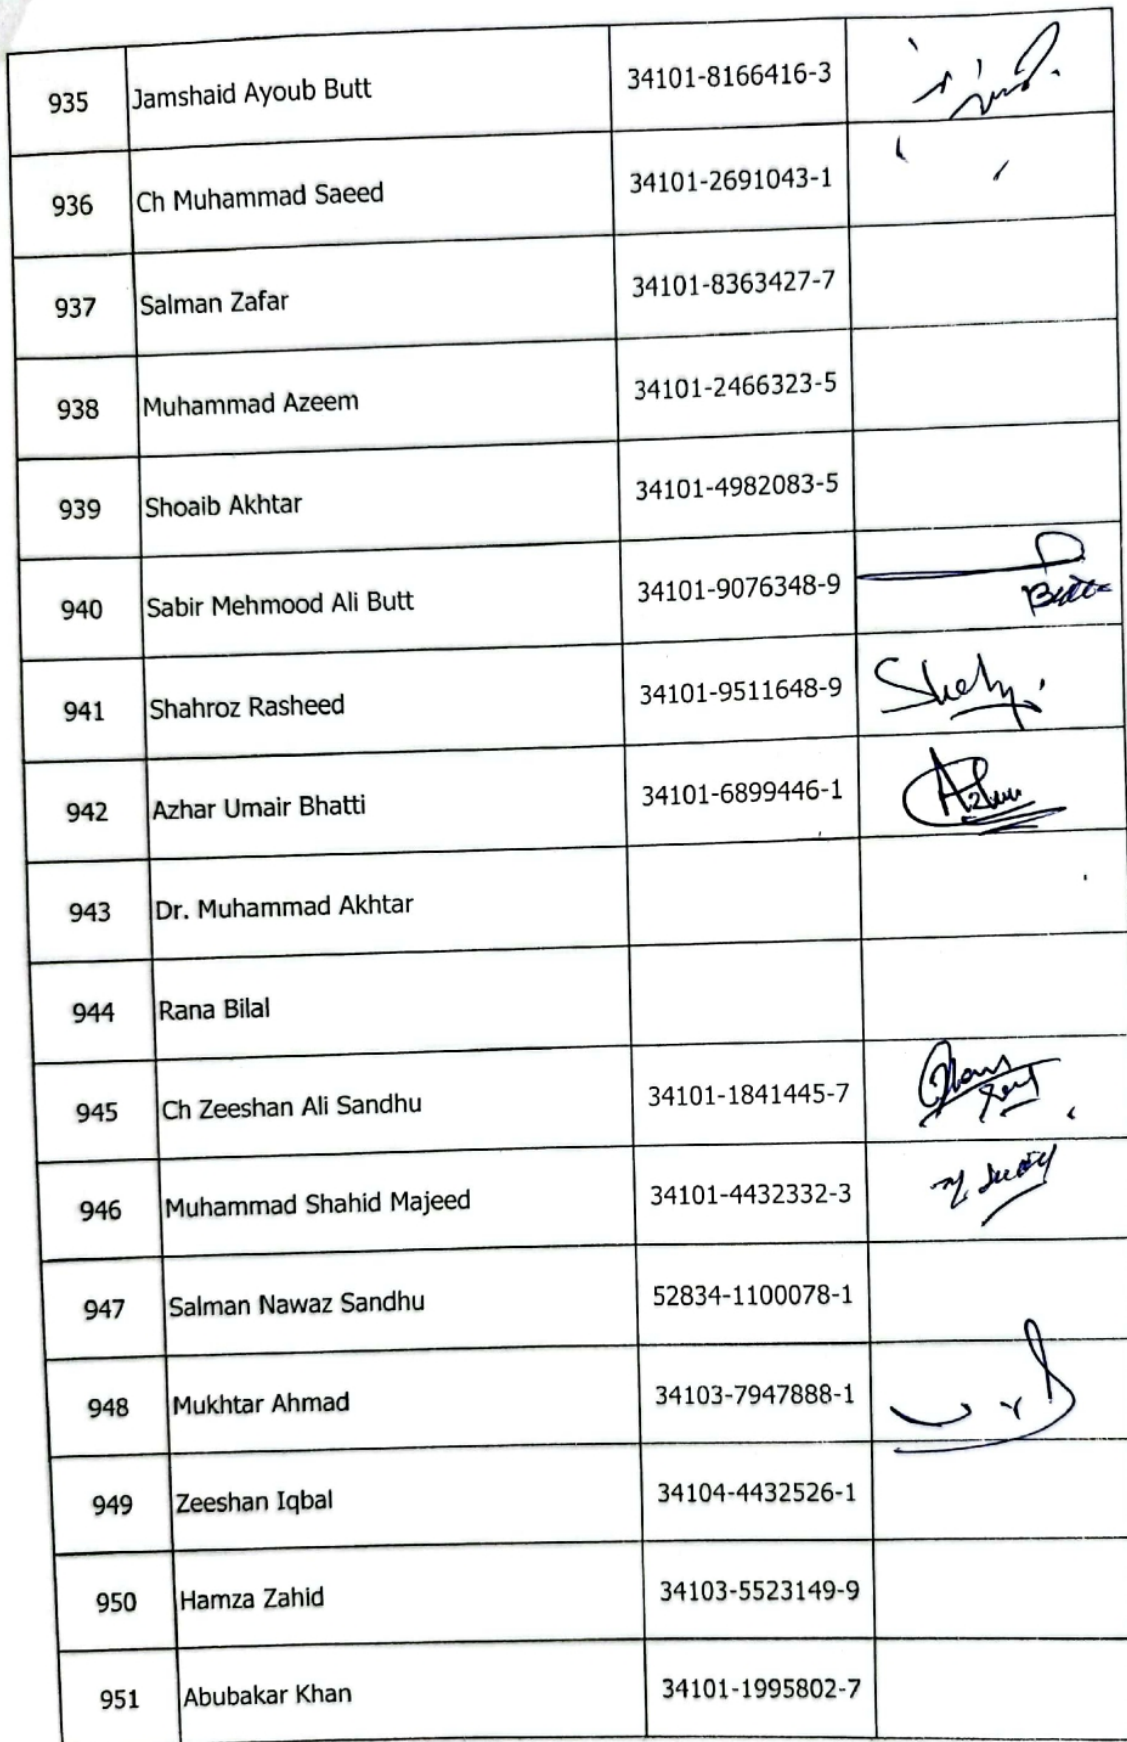 935 Jamshaid Ayoub Butt 34101-8166416-3
936 Ch Muhammad Saeed 34101-2691043-1
937 Salman Zafar 34101-8363427-7
938 Muhammad Azeem 34101-2466323-5
939 Shoaib Akhtar 34101-4982083-5
940 Sabir Mehmood Ali Butt 34101-9076348-9 Butt
941 Shahroz Rasheed 34101-9511648-9
942 Azhar Umair Bhatti 34101-6899446-1
943 Dr. Muhammad Akhtar
944 Rana Bilal
945 Ch Zeeshan Ali Sandhu 34101-1841445-7
946 Muhammad Shahid Majeed 34101-4432332-3
947 Salman Nawaz Sandhu 52834-1100078-1
948 Mukhtar Ahmad 34103-7947888-1
949 Zeeshan Iqbal 34104-4432526-1
950 Hamza Zahid 34103-5523149-9
951 Abubakar Khan 34101-1995802-7